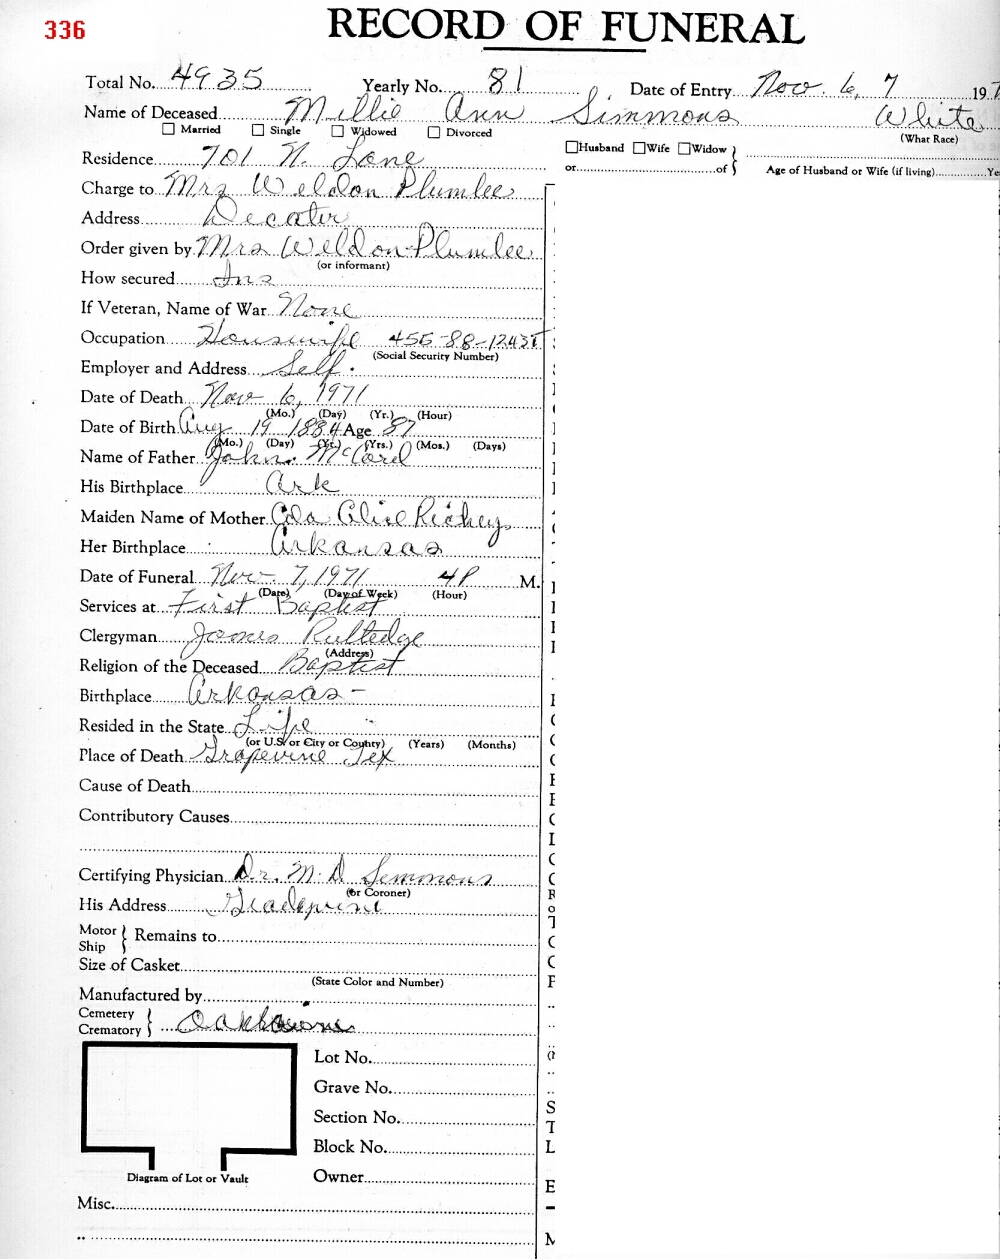 336
RECORD OF FUNERAL
Total No. 4935 Yearly No. 81 Date of Entry Nov. 6, 7 197
Name of Deceased Millie Ann Simmons White
Married Single Widowed Divorced (What Race)
Husband Wife Widow
Residence 701 N. Lane
or of Age of Husband or Wife (if living) Ye
Charge to Mrs Weldon Plumlee
Address Decatur
Order given by Mrs Weldon Plumlee
(or informant)
How secured Ins
If Veteran, Name of War None
Occupation Housewife 455-88-1243T
(Social Security Number)
Employer and Address Self.
Date of Death Nov 6, 1971
(Mo.) (Day) (Yr.) (Hour)
Date of Birth Aug 19 1884 Age 87
(Mo.) (Day) (Yr.) (Yrs.) (Mos.) (Days)
Name of Father John McCord
His Birthplace Ark
Maiden Name of Mother Ada Alice Richey
Her Birthplace Arkansas
Date of Funeral Nov. 7, 1971 4P M.
(Date) (Day of Week) (Hour)
Services at First Baptist
Clergyman James Rutledge
(Address)
Religion of the Deceased Baptist
Birthplace Arkansas-
Resided in the State Life
(or U.S. or City or County) (Years) (Months)
Place of Death Grapevine Tex
Cause of Death
Contributory Causes
Certifying Physician Dr. M. D. Simmons
(or Coroner)
His Address
Motor Ship Remains to
Size of Casket
(State Color and Number)
Manufactured by
Cemetery Crematory
Lot No.
Grave No.
Section No.
Block No.
Diagram of Lot or Vault
Owner
Misc.